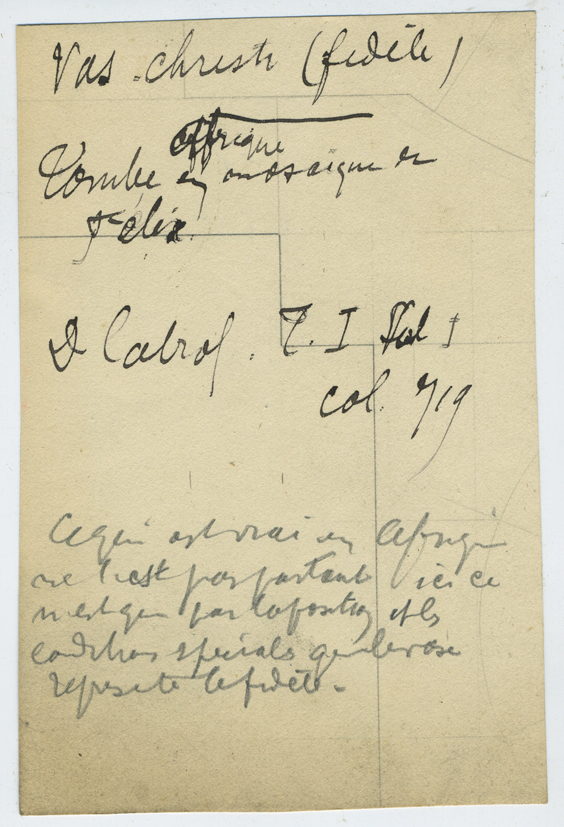 Vas christi (fidèle)
Affrique
Tombe en mosaique de
Felix
D Cabrol. T. I Vol I
col. 719
Ce qui est vrai en Afrique
ne l'est pas partout ici ce
n'est que par la position et les
conditions spéciales que le vase
représente le fidèle.